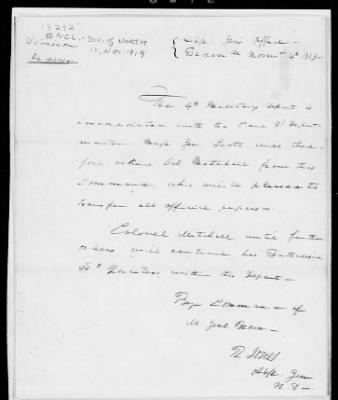 13292
ENCL.-DIV. of NORTH
Division 12, Nov. 1819
{ Adjt. Genl Office -
4th 1819 -
The 4th Military Dept is
with the 1st and 3d Depart
ments. Majr Genl Scott will there
fore relieve Col Mitchell from this
Command, who will please to
transfer all official papers -
Colonel Mitchell until further
orders will continue his Battalion
Hd Quarters, within the Depart -
By Command of
M. Genl Brown -
R Jones
Adjt. Gen
N. D -